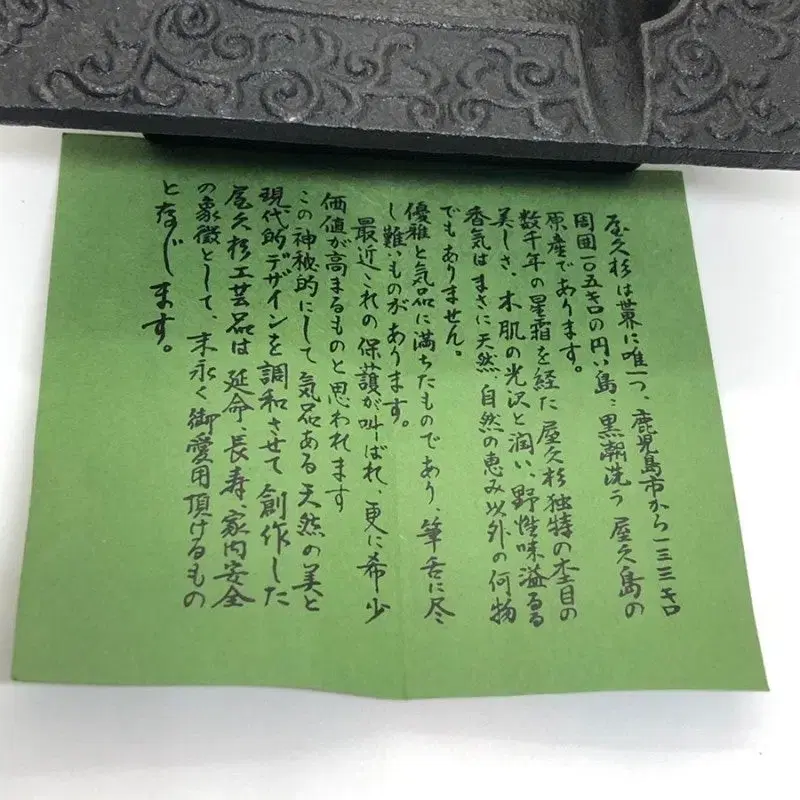 屋久杉は世界に唯一つ、鹿児島市から一三三キロ
周囲一〇五キロの円い島：黒潮洗う屋久島の
原産であります。
数千年の星霜を経た屋久杉独特の杢目の
美しさ、木肌の光沢と潤い、野性味溢るる
香気はまさに天然、自然の恵み以外の何物
でもありません。
優雅と気品に満ちたものであり、筆舌に尽
し難いものがあります。
最近これの保護が叫ばれ、更に希少
価値が高まるものと思われます
この神秘的にして気品ある天然の美と
現代的デザインを調和させて創作した
屋久杉工芸品は延命、長寿、家内安全
の象徴として、末永く御愛用頂けるもの
と存じます。